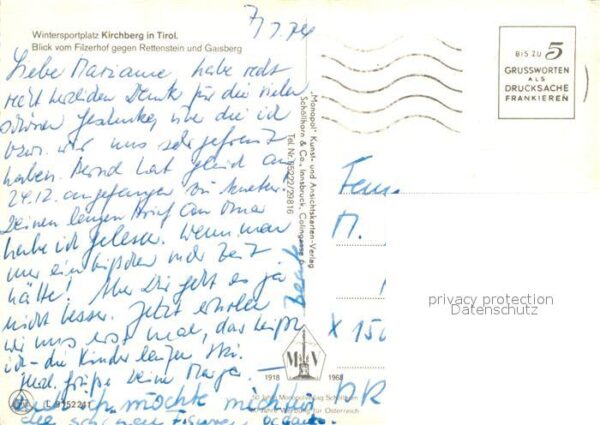 Wintersportplatz Kirchberg in Tirol.
Blick vom Filzerhof gegen Rettenstein und Gaisberg
Liebe Marianne, habe recht
recht herzlichen Dank für die vielen
schönen Geschenke, über die ich
bzw. wir uns sehr gefreut
haben. Bernd hat gleich am
24.12. angefangen zu
Deinen langen Brief an Oma
habe ich gelesen. Wenn man
nur ein bißchen mehr Zeit
hätte! Aber Dir geht es ja
nicht besser. Jetzt erholen
wir uns erst mal, das heißt
ich - die Kinder laufen Ski.
Herzl. Grüße Deine
Auch ich möchte mich für
die schönen
"Monopol" Kunst- und Ansichtskarten-Verlag
Schöllhorn & Co., Innsbruck, Colingasse
Tel. Nr. 05222/29816
BIS ZU 5
GRUSSWORTEN
ALS
DRUCKSACHE
FRANKIEREN
Fam.
M.
X 150
DR
privacy protection
Datenschutz
M V
1918 1968
50 Jahre Monopol-Verlag Schöllhorn
50 Jahre Werbung für Österreich